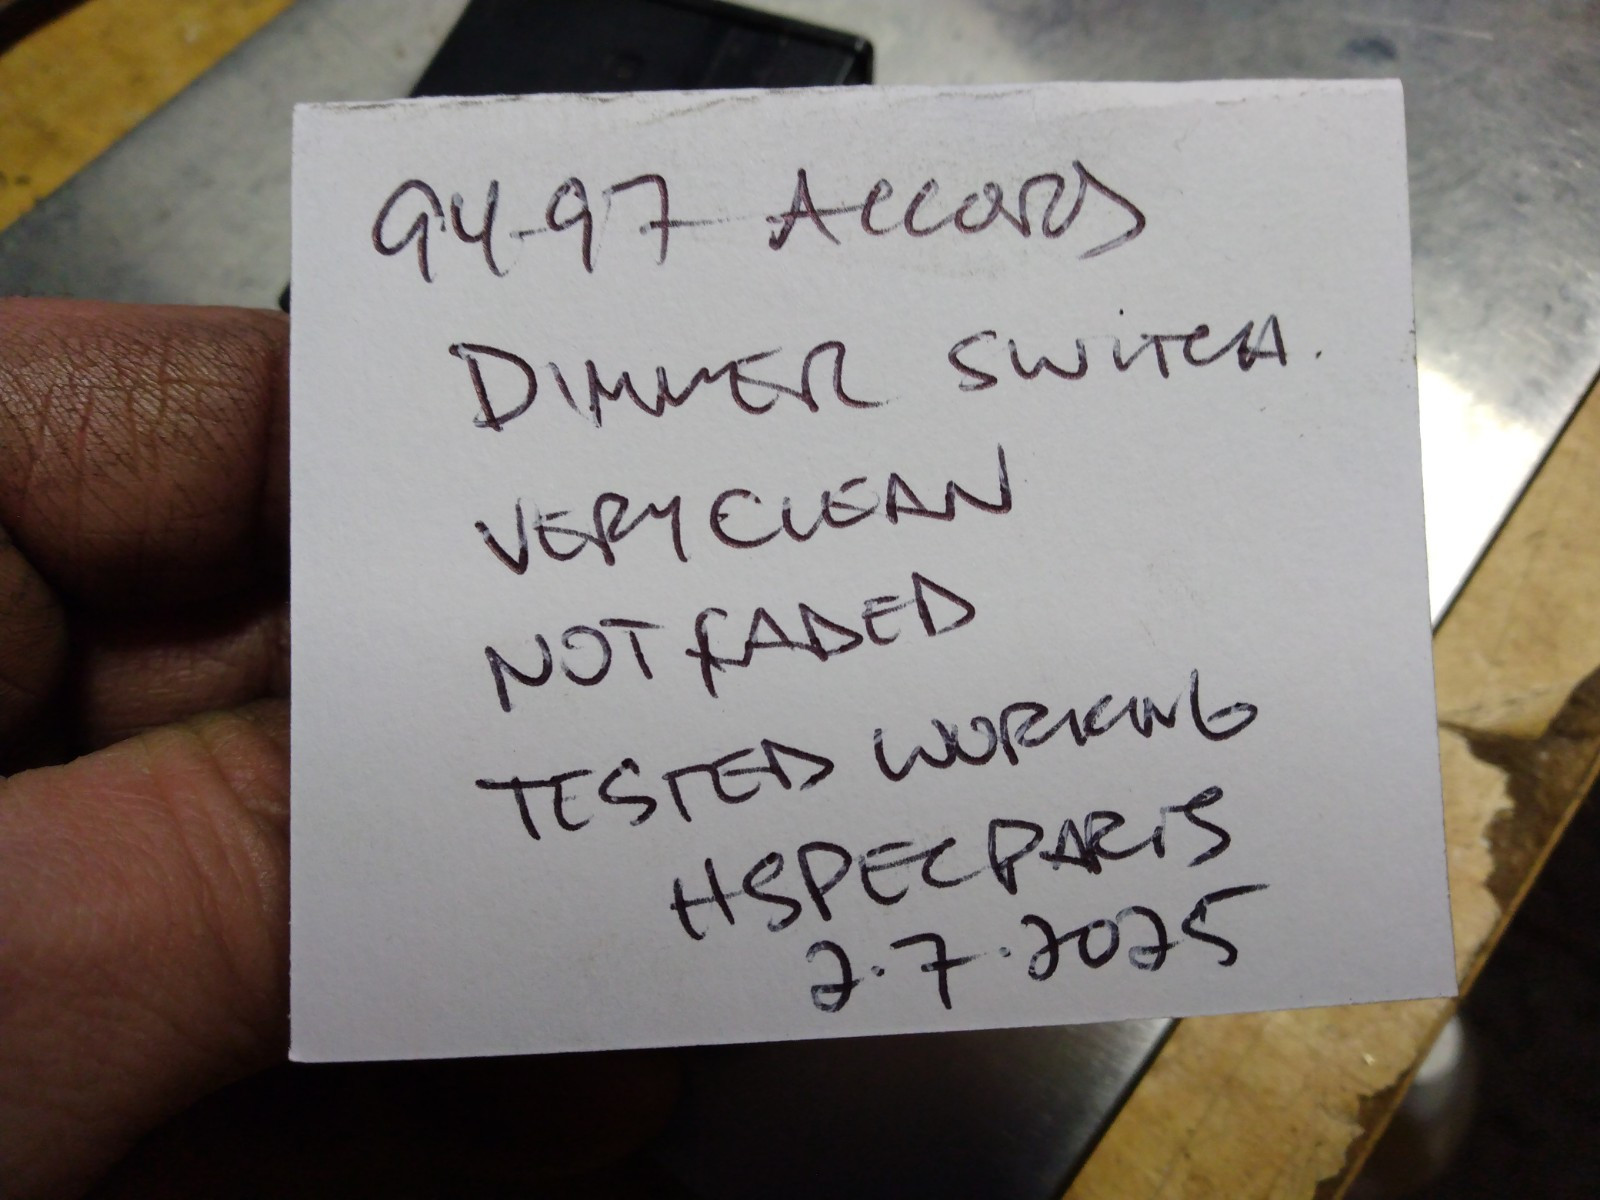 94-97 ACCORD
DIMMER SWITCH.
VERY CLEAN
NOT FADED
TESTED WORKING
HSPECPARTS
2.7.2025